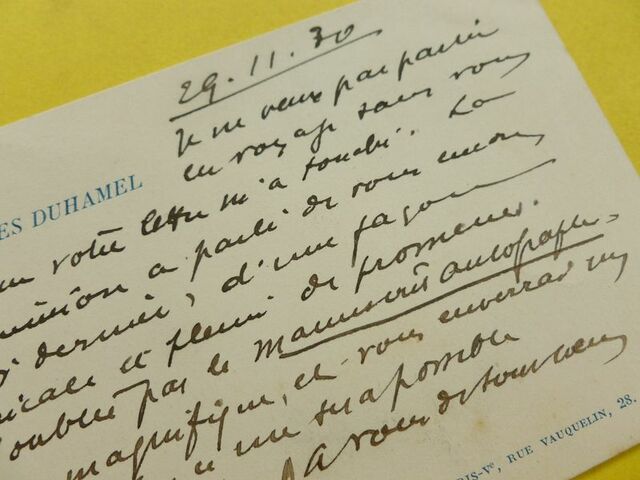 29.11.30
Je ne veux pas partir
en voyage sans vous
ES DUHAMEL
votre lettre m'a touché. La
a parlé de vous encore
dernier, d'une façon
icale et pleine de promesses.
oublie pas le manuscrit autographe
magnifique, et vous enverrai
me sera possible
de tout coeur
RIS-Vᵉ, RUE VAUQUELIN, 28.